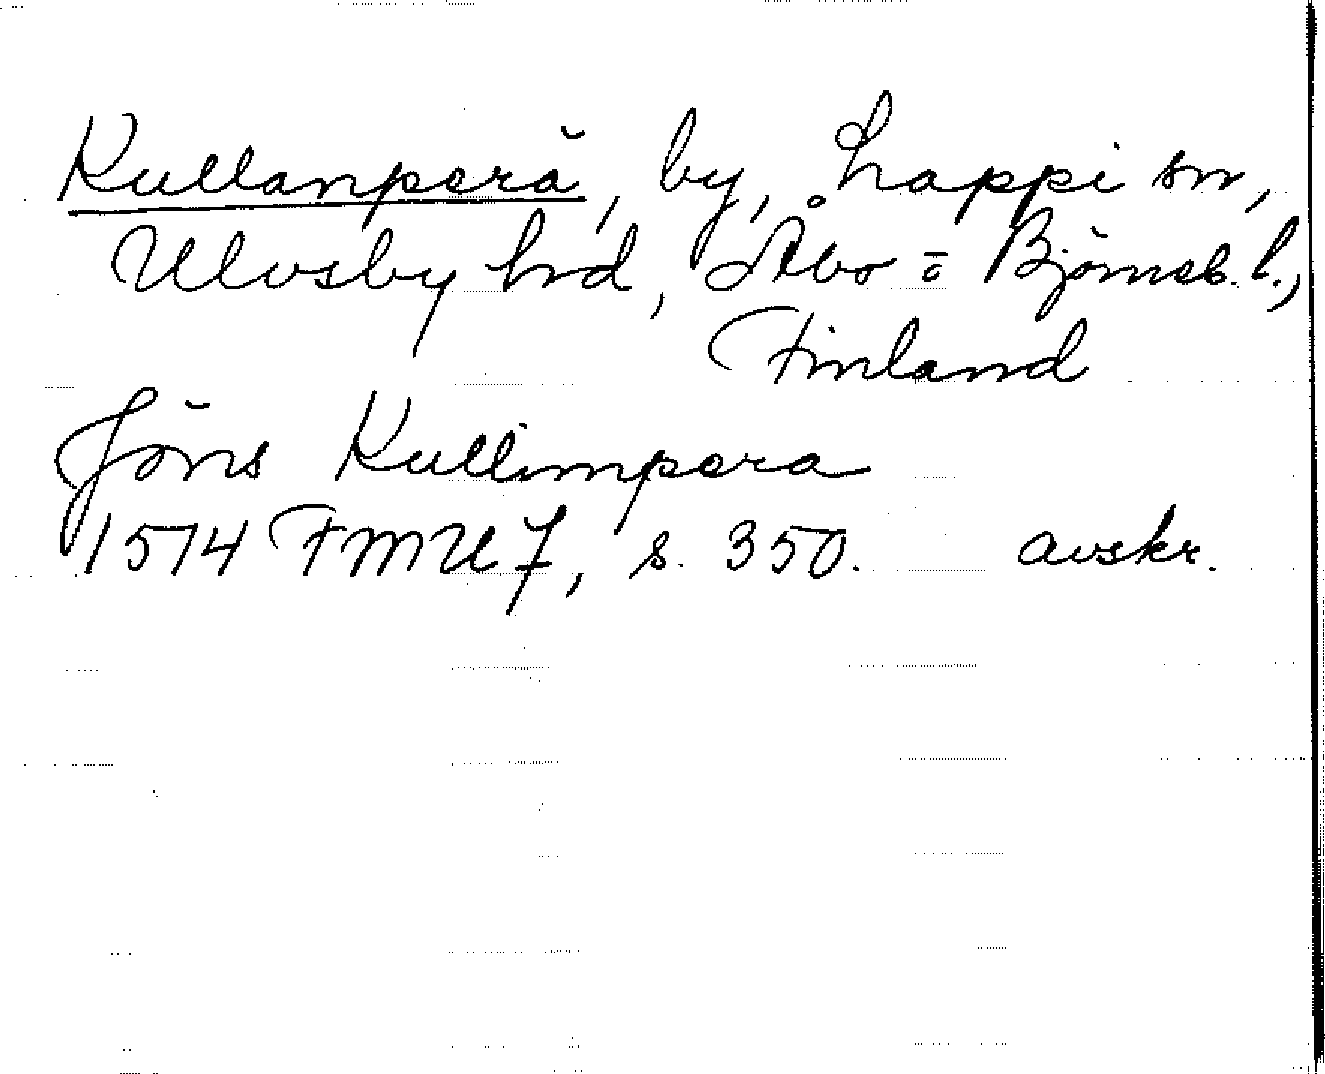 Kullanperä, by, Lappi sn,
Ulvsby hd, Åbo o Björneb. l.,
Finland
Jöns Kullimpera
1514 FMU 7, s. 350. avskr.